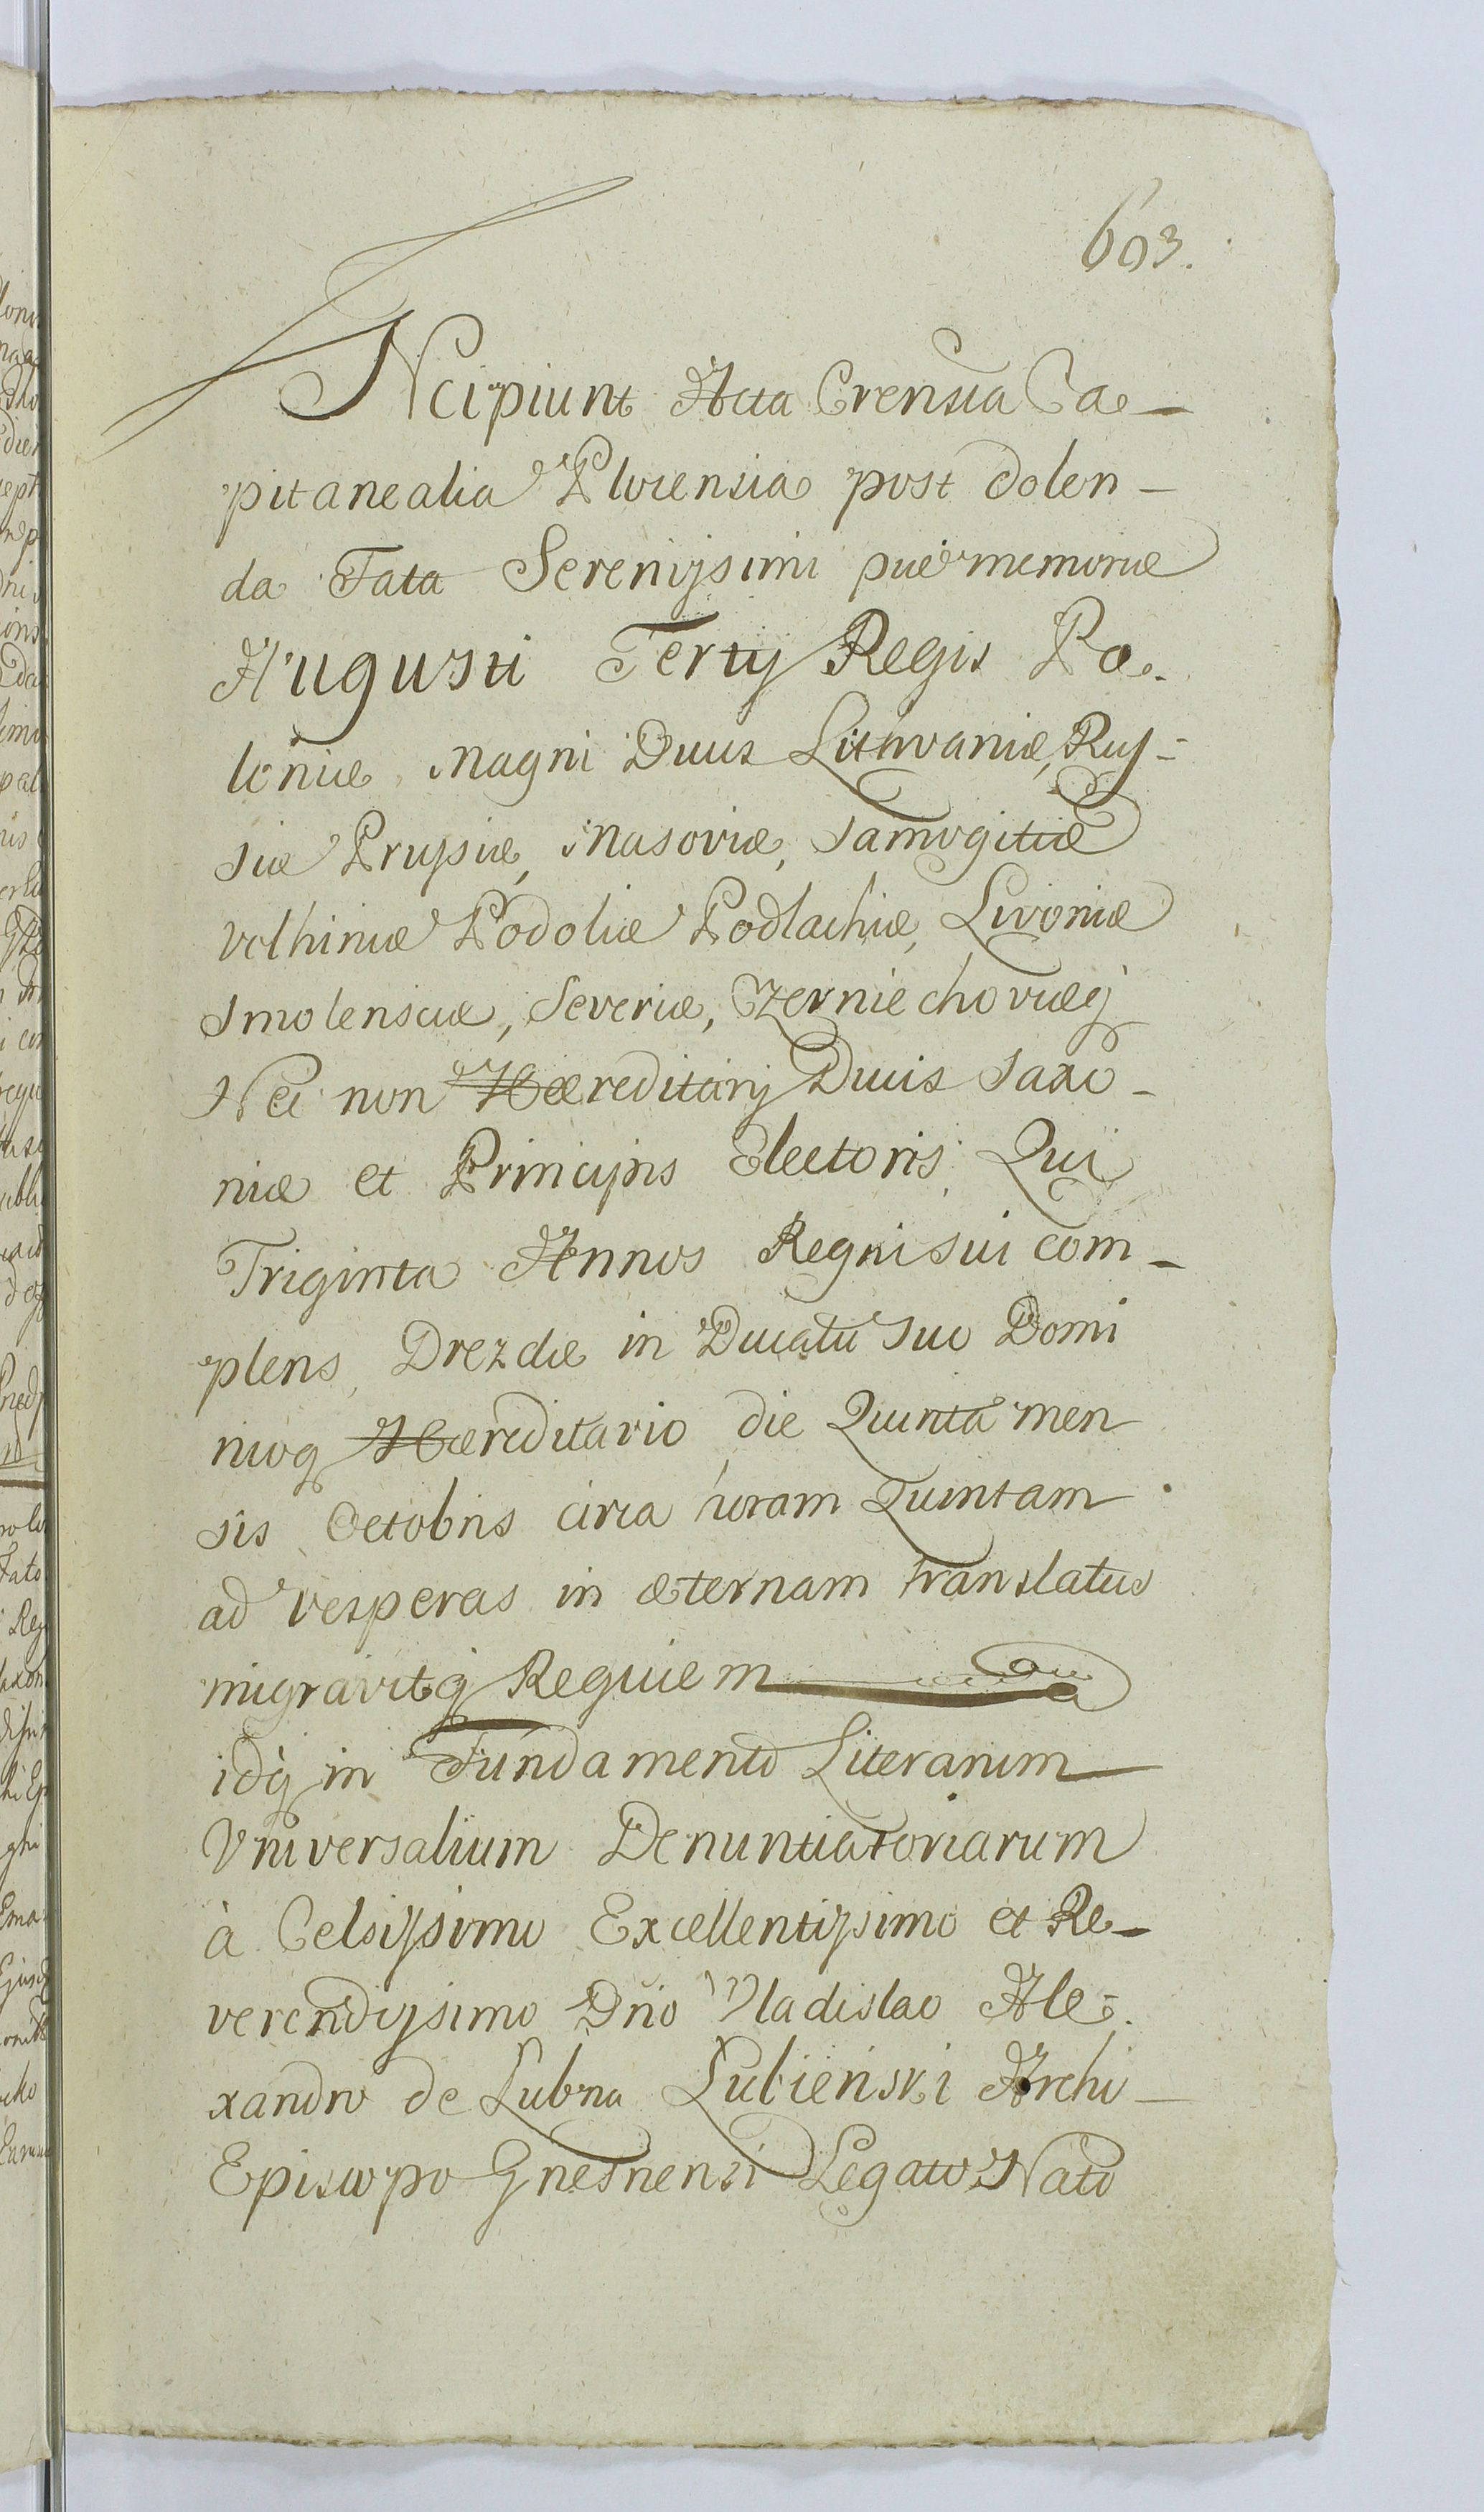 603.
INcipiunt Acta Crensia Ca-
pitanealia Plocensia post dolen-
da Fata Serenissimi piæ memoriæ
Augusti Tertij Regis Po-
loniæ Magni Ducis Lithvaniæ, Rus-
siæ Prussiæ, Masoviæ, Samogitiæ
Volhiniæ Podoliæ Podlachiæ, Livoniæ
Smolensciæ, Severiæ, Czerniechoviæq
Nec non Hæreditarij Ducis Saxo-
niæ et Principis Electoris, Qui
Triginta Annos Regni sui com-
plens, Drezdæ in Ducatu suo Domi
nioq Hæreditario, die Quinta men
sis Octobris circa horam Quintam
ad vesperas in æternam translatus
migravitq Requiem
idq in Fundamento Literarum
Vniversalium Denuntiatoriarum
à Celsissimo Excellentissimo et Re-
verendissimo Dño Vladislao Ale-
xandro de Lubna Lubieński Archi-
Episcopo Gnesnensi Legato Nato